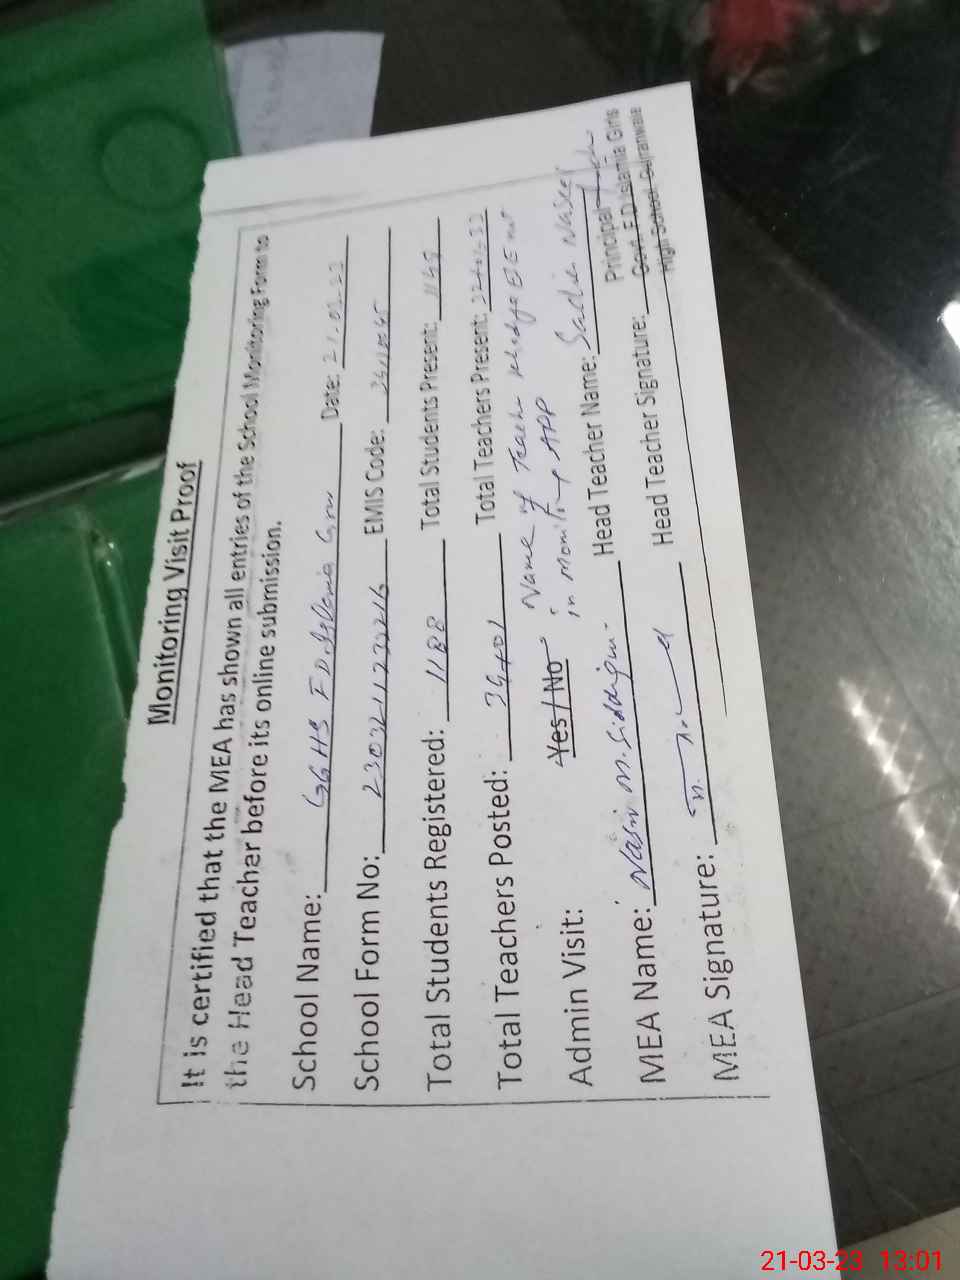 Monitoring Visit Proof
It is certified that the MEA has shown all entries of the School Monitoring Form to
the Head Teacher before its online submission.
School Name: GGHS F.D. Islamia Grw Date: 21.03.23
School Form No: EMIS Code:
Total Students Registered: 1188 Total Students Present:
Total Teachers Posted: 34+01 Total Teachers Present:
Admin Visit: Yes / No Name of Teacher
in Monitoring APP
MEA Name: Nasir M. Siddiqui Head Teacher Name: Sadia Naseer
MEA Signature: Head Teacher Signature:
Principal
Govt. F.D. Islamia Girls
High School Gujranwala
21-03-23 13:01